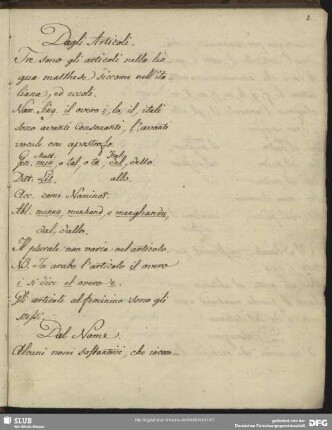 2
Dagli Articoli.
Tre sono gli articoli nella lin-
gua maltese siccome nell'ita
liana, ed eccoli.
Nom. Sing. il overo i, la, il, itali
sono avanti consonanti, l'avanti
vocali con apostrofo.
Matt. Ital.
Gen. min, o tal, o ta dal, dello
Datt. Lil allo.
Acc. come Nominat.
Abl. minn, munhand, o menghandu,
dal, dallo.
Il plurale non varia nel articolo.
NB. In arabo l'articolo il overo
i si dice el overo e.
Gli articoli al feminino sono gli
stessi.
Dal Nome.
Alcuni nomi sostantivi, che incom-
SLUB
Wir führen Wissen.
gefördert von der
Deutschen Forschungsgemeinschaft
DFG